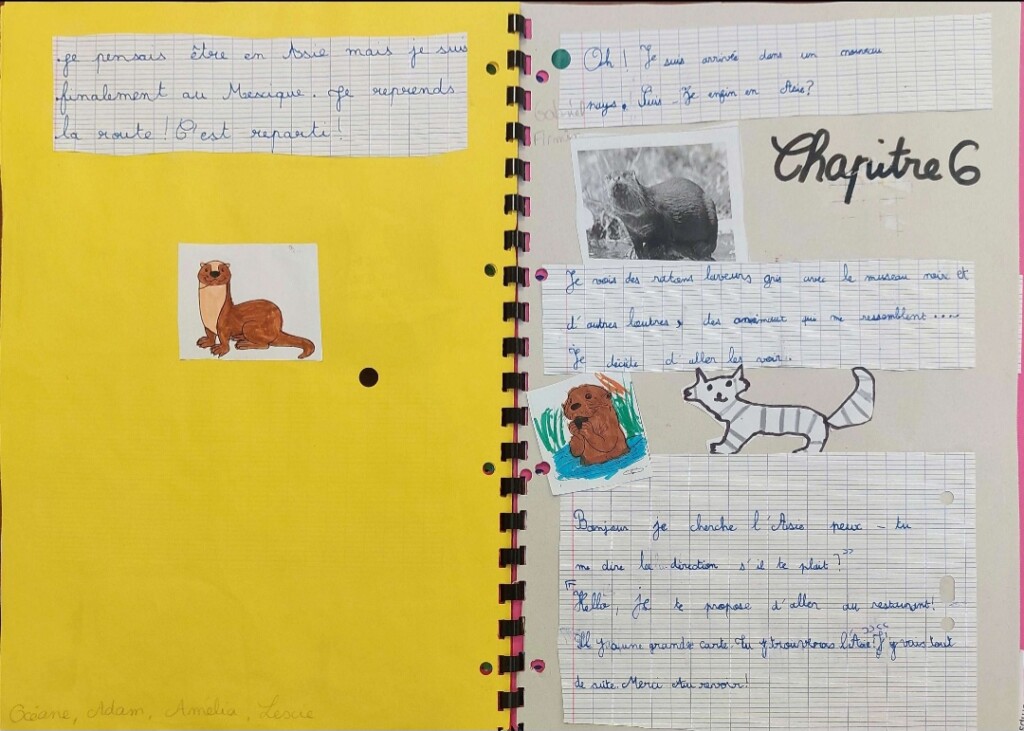 Je pensais être en Asie mais je suis
finalement au Mexique. Je reprends
la route ! C'est reparti !
Océane, Adam, Amelia, Lexie
Oh ! Je suis arrivée dans un nouveau
pays. Suis-Je enfin en Asie ?
Gabriel
Chapitre 6
Je vois des ratons laveurs gris avec le museau noir et
d'autres loutres, des animaux qui me ressemblent....
Je décide d'aller les voir.
Bonjour je cherche l'Asie peux-tu
me dire la direction s'il te plait ?»
"Hello, je te propose d'aller au restaurant !
Il y a une grande carte. Tu y trouveras l'Asie !»« J'y vais tout
de suite. Merci Au revoir !